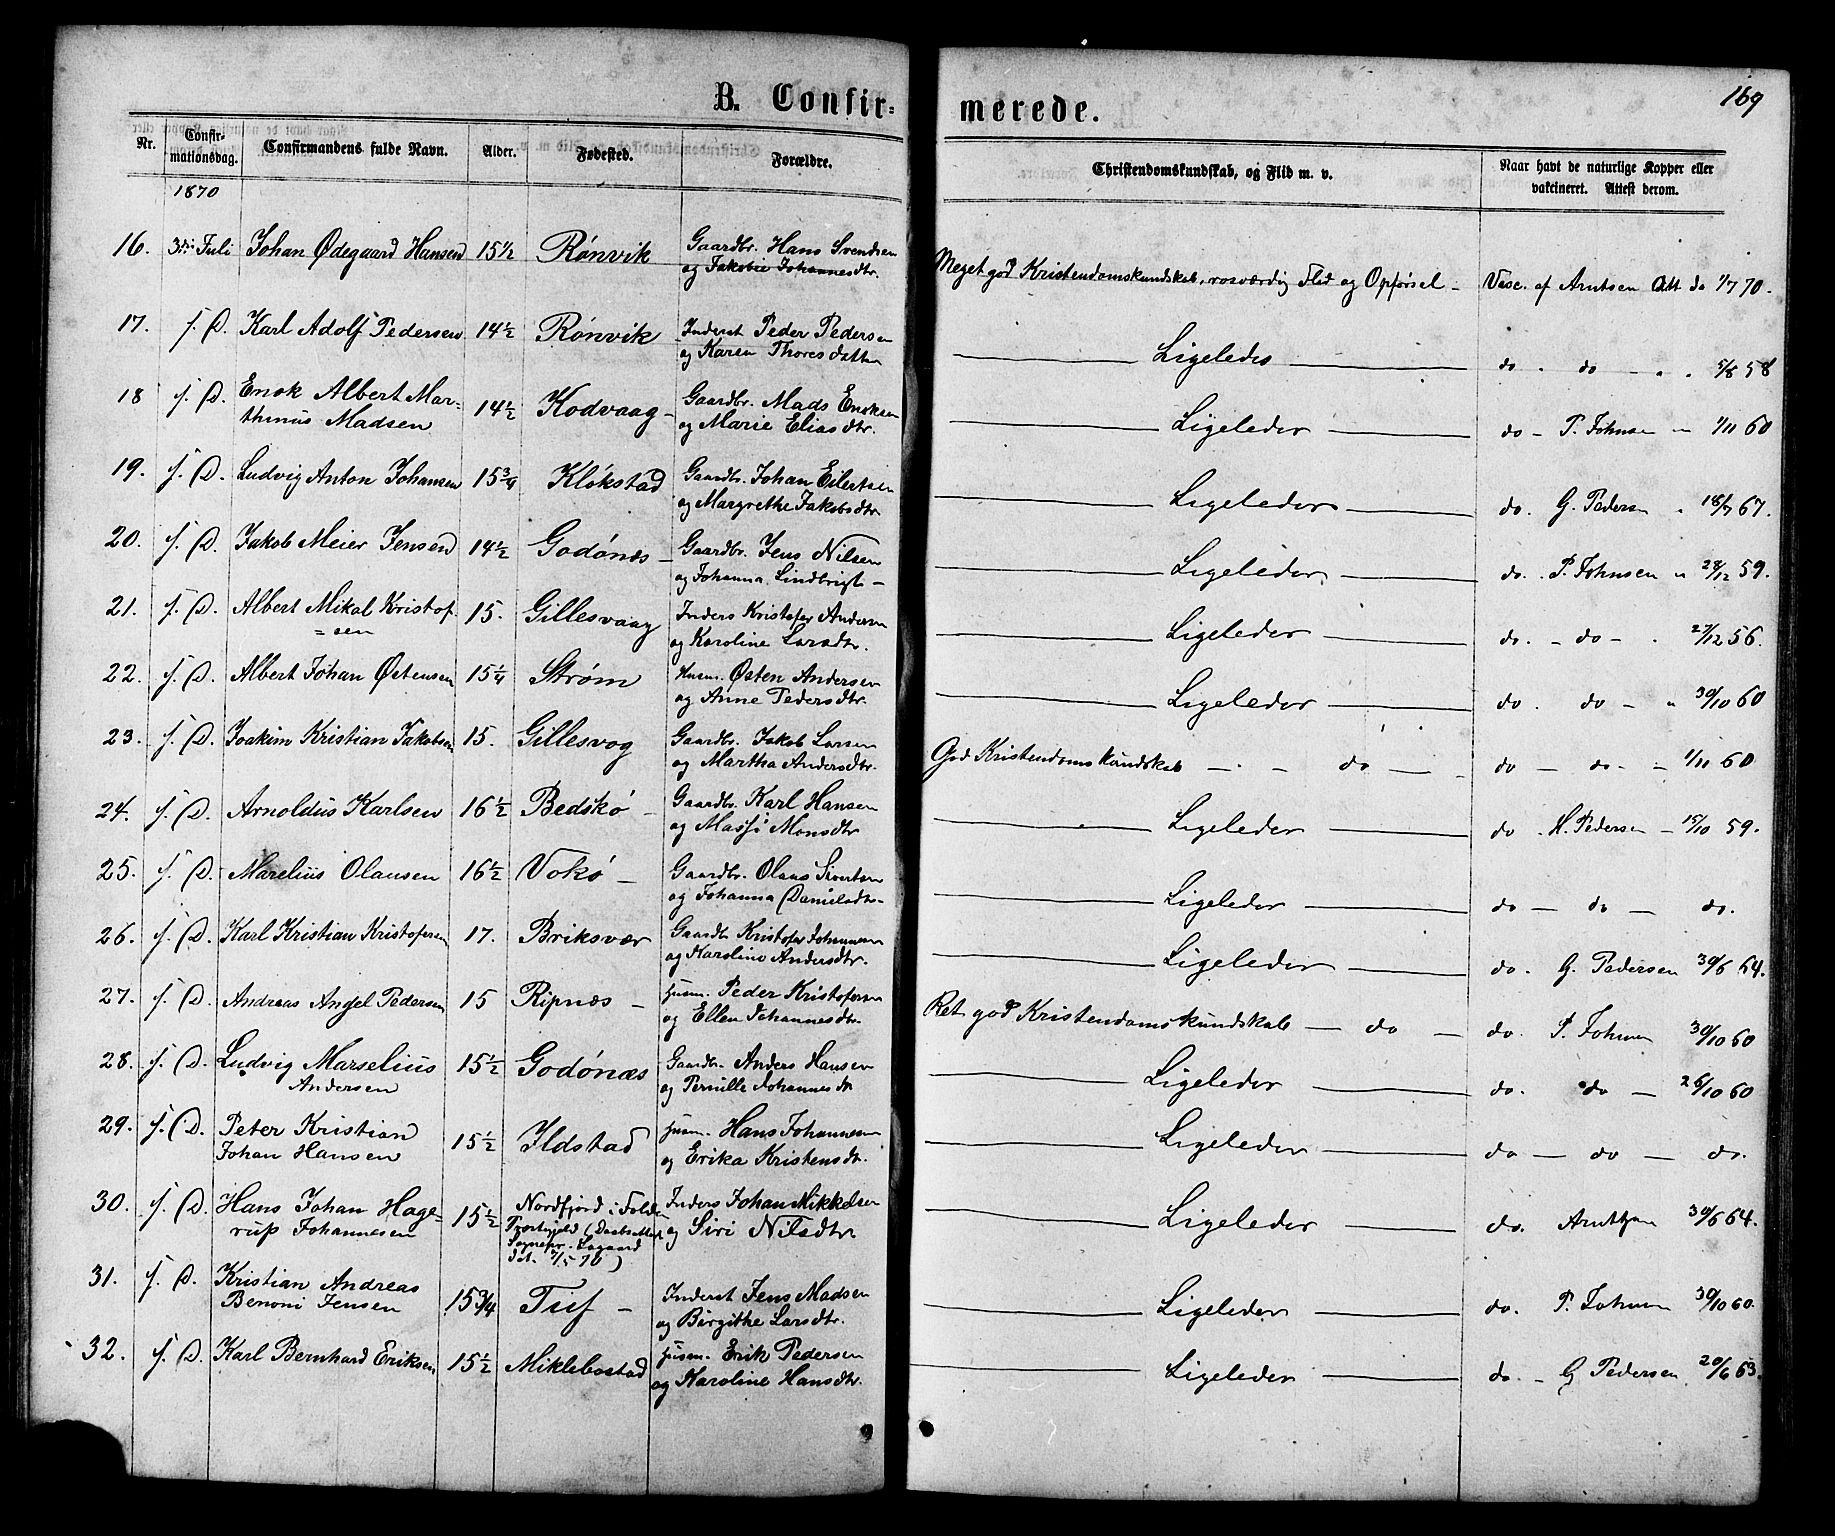 B. Confir-
merede.
169
Nr.
Confir-
mationsdag.
Confirmandens fulde Navn.
Alder.
Fødested.
Forældre.
Christendomskundskab, og Flid m. v.
Naar havt de naturlige Kopper eller
vakcineret. Attest derom.
1870
16. 3die Juli Johan Ødegaard Hansen 15 1/2 Rønvik Gaardbr. Hans Svendsen
og Jakobie Johannesdtr.
Meget god Kristendomskundskab, rosværdig Flid og Opførsel – Vacc. af Arntsen Att do 1/7 70.
17. s. D. Karl Adolf Pedersen 14 1/2 Rønvik Inderst Peder Pedersen
og Karen Thoresdatter
Ligeledes do. do 5/8 58
18 s. D. Enok Albert Mar=
thinus Madsen 14 1/2 Kodvaag – Gaardbr. Mads Enoksen
og Marie Eliasdtr.
Ligeleder do – P. Johnsen 1/11 60
19. s. D. Ludvig Anton Johansen 15 3/4 Kløkstad Gaardbr. Johan Eilertsen
og Margrethe Jakobsdtr
Ligeleder do. G. Pedersen 18/7 67.
20. s. D. Jakob Meier Jensen 14 1/2 Godønes – Gaardbr. Jens Nilsen
og Johanna Lindbrigt –
Ligeleder do. P. Johnsen 28/12 59.
21. s. D. Albert Mikal Kristof
=sen 15. Gillesvaag Inders Kristofer Andersen
og Karoline Larsdtr.
Ligeleder do. – do – 27/12 56.
22. s. D. Albert Johan Østensen 15 1/4 Strøm Husm. Østen Andersen
og Anne Pedersdtr.
Ligeleder do. do – 30/10 60
23. s. D. Joakim Kristian Jakobsen 15. Gillesvog Gaardbr. Jakob Larsen
og Martha Andersdtr.
God Kristendomskundskab – – do – – do – do – 1/11 60
24. s. D. Arnoldus Karlsen 16 1/2 Bedskø – Gaardbr. Karl Hansen
og Massi Monsdtr
Ligeleder do H. Pedersen – 15/10 59.
25. s. D. Marelius Olausen 16 1/2 Vokø – Gaardbr. Olaus Sivertsen
og Johanna Danielsdtr
Ligeleder do – do – do.
26. s. D. Karl Kristian Kristofersen 17. Briksvær Gaardb. Kristofer Johannesen
og Karoline Andersdtr.
Ligeleder do. G. Pedersen 30/6 64.
27. s. D. Andreas Angel Pedersen 15 Ripnæs – Husm. Peder Kristofersen
og Ellen Johannesdtr.
Ret god Kristendomskundskab – do – do. P. Johnsen 30/10 60
28. s. D. Ludvig Marselius
Andersen 15 1/2 Godønæs Gaardbr. Anders Hansen
og Pernille Johannesdtr
Ligeleder do. do – 26/10 60
29. s. D. Peter Kristian
Johan Hansen 15 1/2 Ildstad Husm. Hans Johannesen
og Erika Kristensdtr.
Ligeleder do – do – do.
30. s. D. Hans Johan Hage=
rup Johannesen 15 1/2 Nordfjord i Folden
Præstegjeld
Sognepr.
Inders Johan Mikkelsen
og Siri Nilsdtr
Ligeleder do. Arntsen 30/6 64.
31. s. D. Kristian Andreas
Benoni Jensen 15 3/4 Tuf – Inderst Jens Madsen
og Birgithe Larsdtr.
Ligeleder do. P. Johnsen 30/10 60.
32. s. D. Karl Bernhard Eriksen 15 1/2 Miklebostad Husm. Erik Pedersen
og Karoline Hansdtr.
Ligeleder do. – G Pedersen 20/6 63.